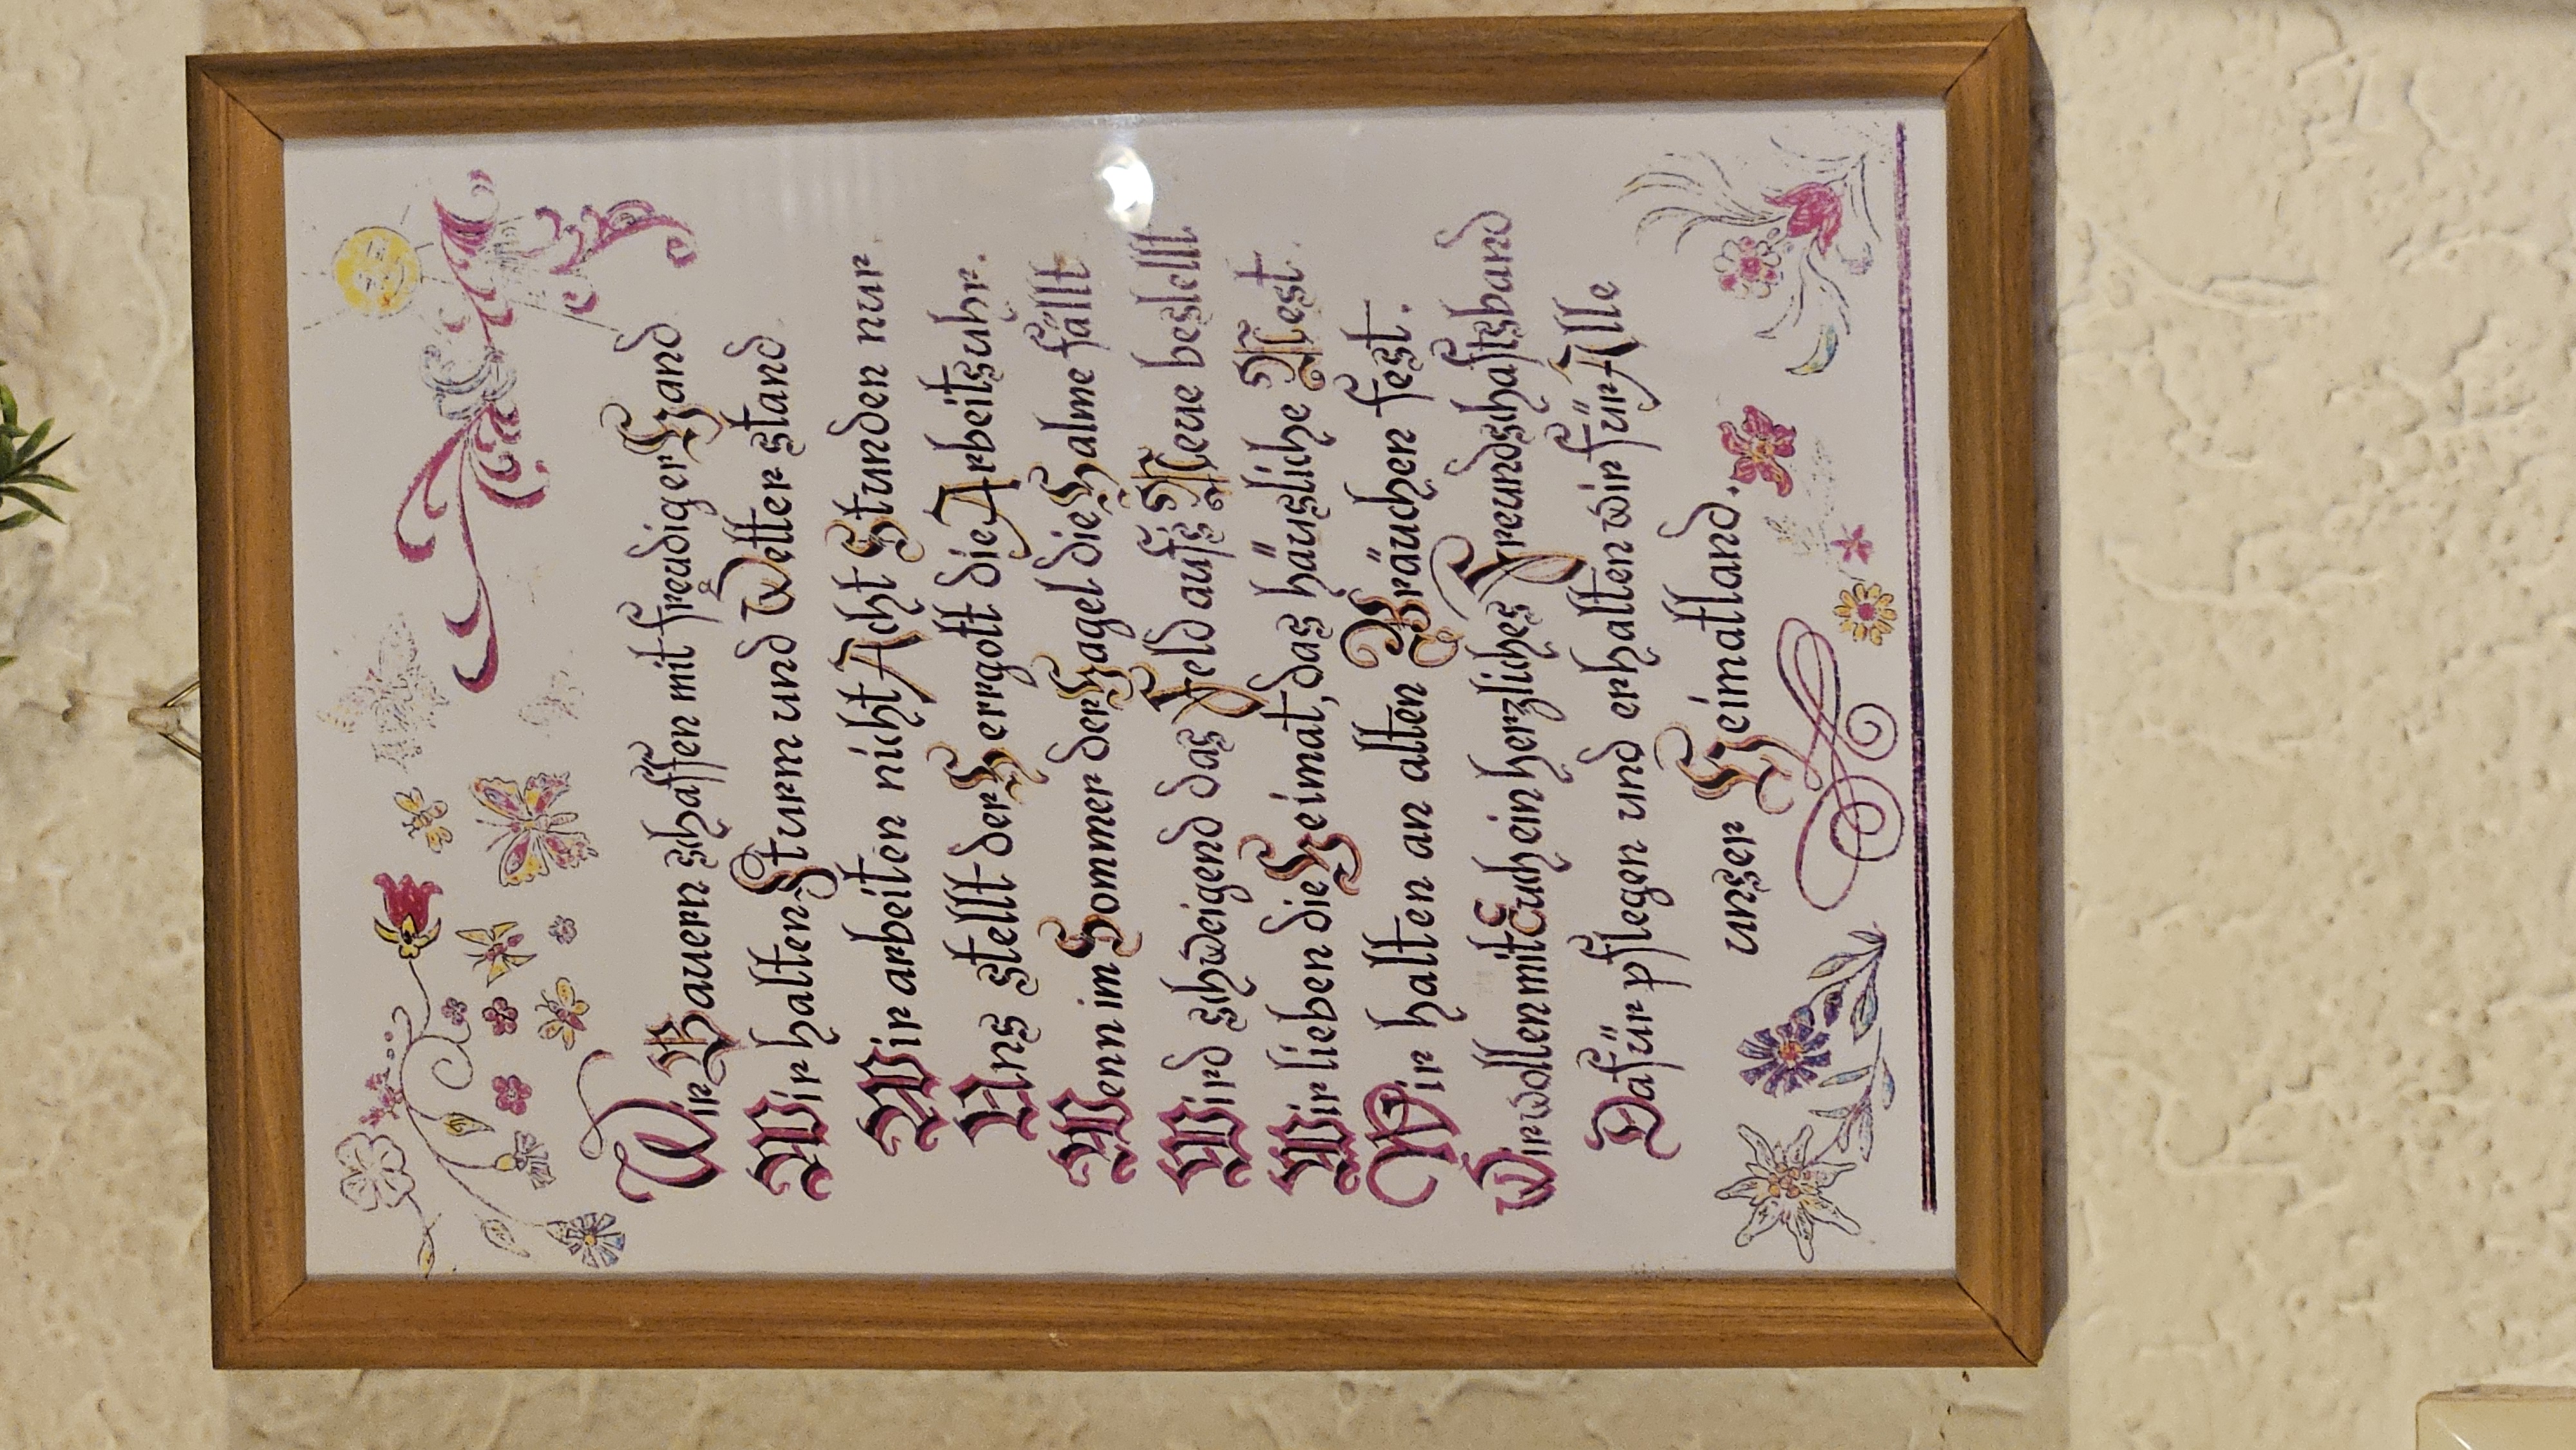 Wir Bauern schaffen mit freudiger Hand
Wir halten Sturm und Wetter stand
Wir arbeiten nicht Acht Stunden nur
Uns stellt der Herrgott die Arbeitsuhr.
Wenn im Sommer der Hagel die Halme fällt
Wird schweigend das Feld aufs Neue bestellt
Wir lieben die Heimat, das häusliche Nest.
Wir halten an alten Bräuchen fest.
Wir wollen mit Euch ein herzliches Freundschaftsband
Dafür pflegen und erhalten wir für Alle
unser Heimatland.